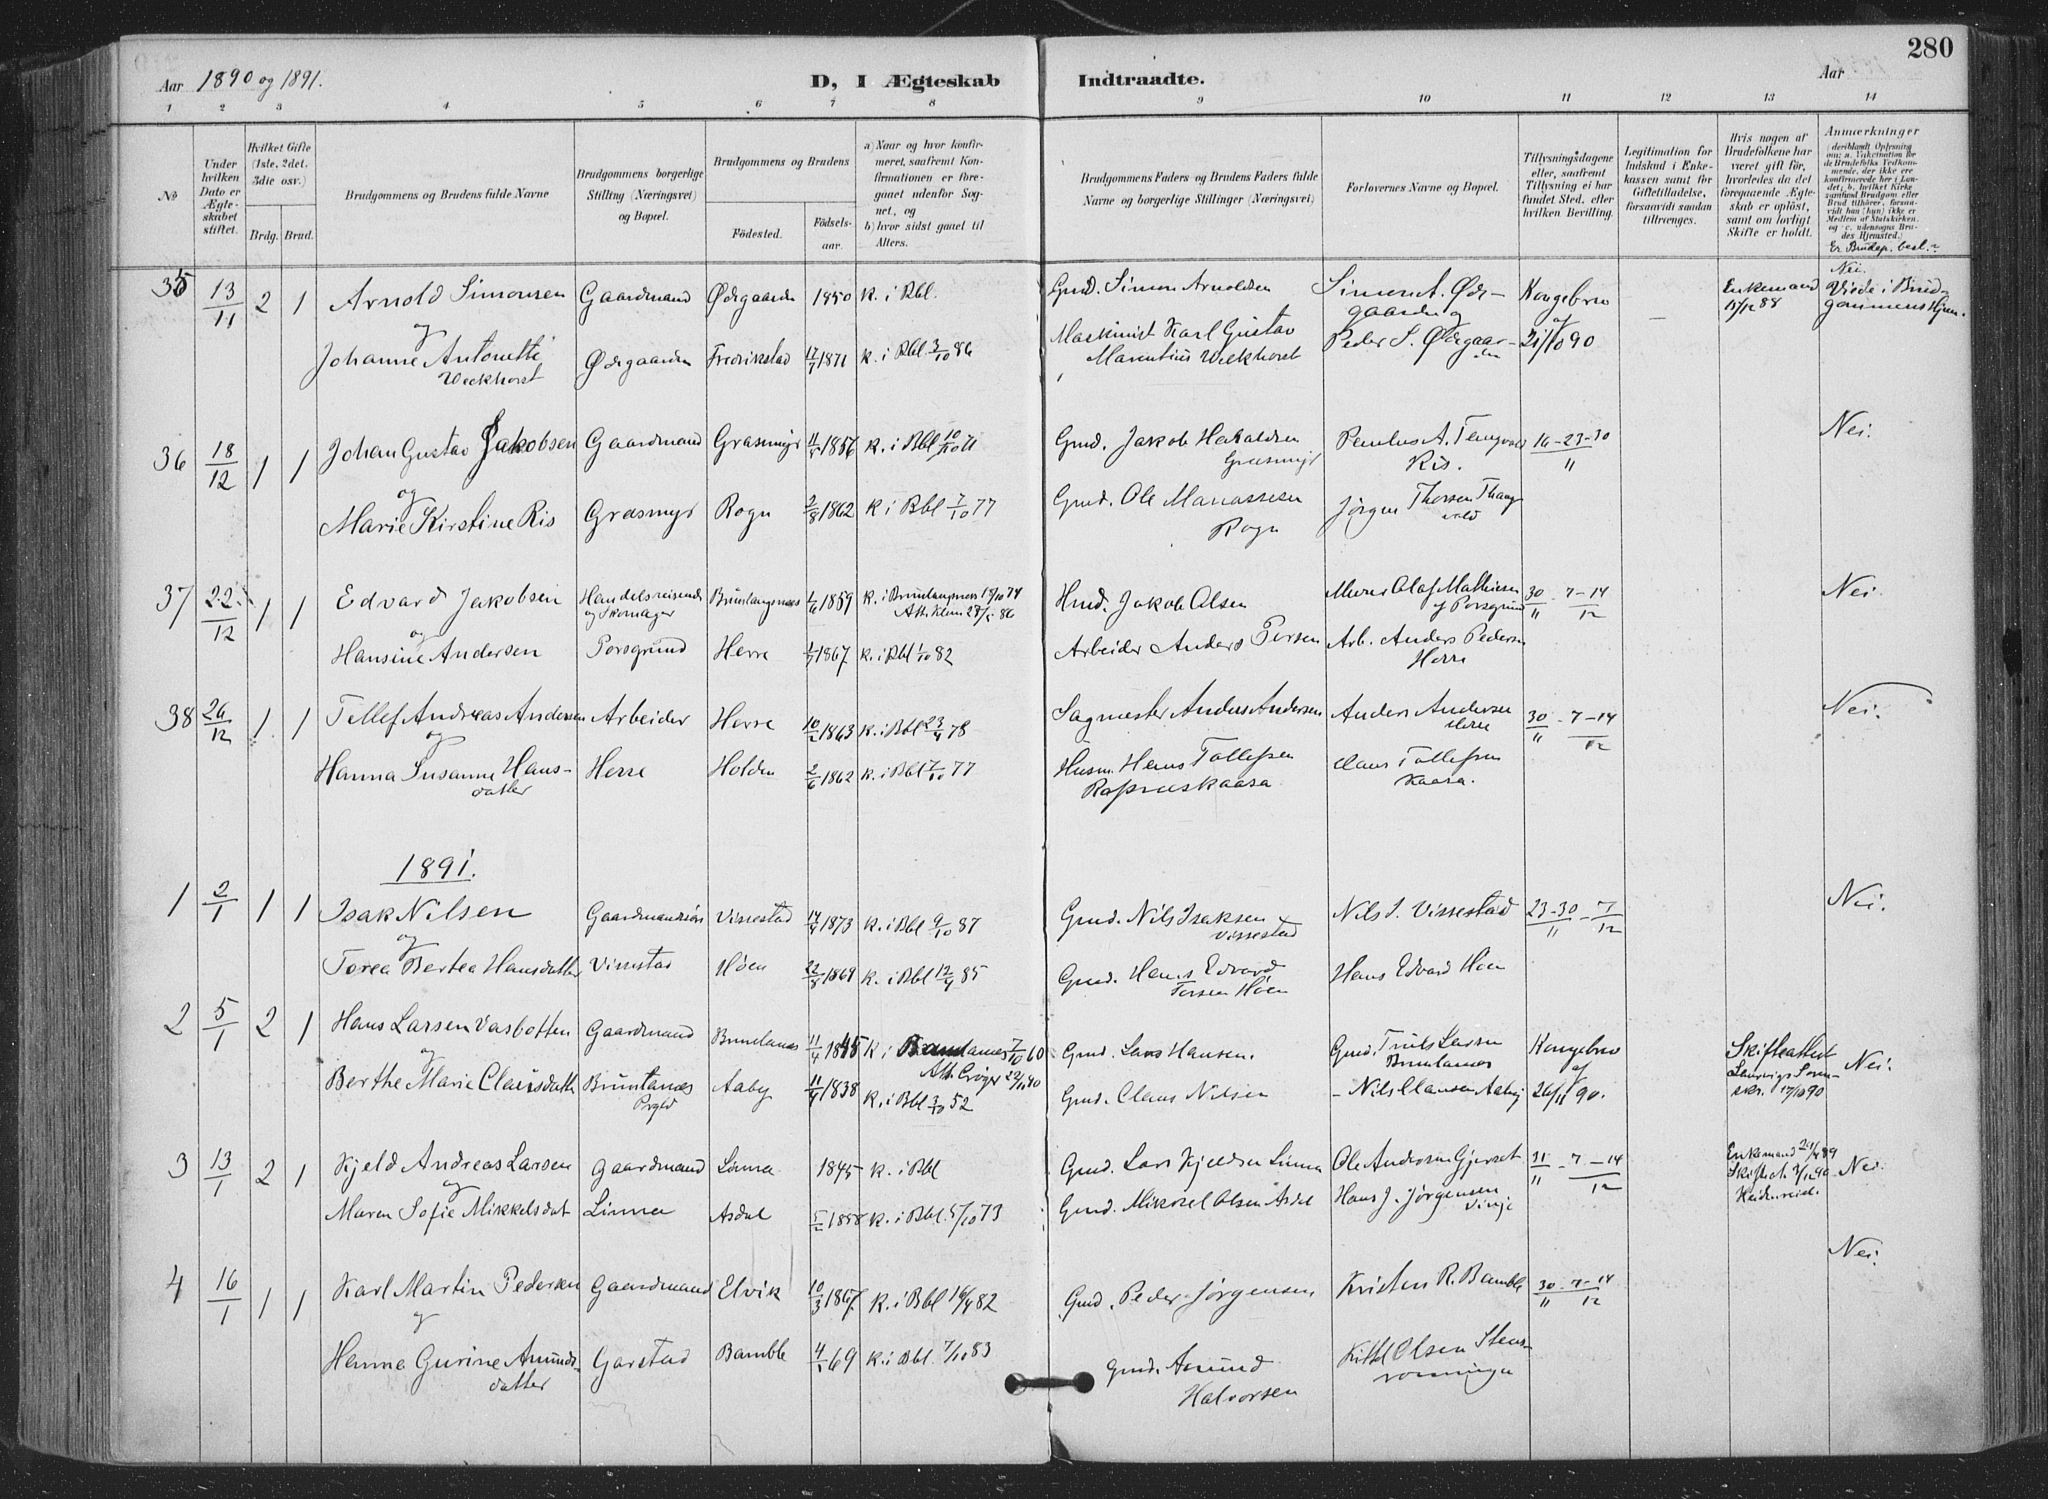 280
Aar 1890 og 1891.
D, I Ægteskab Indtraadte.
Aar
1 2 3 4 5 6 7 8 9 10 11 12 13 14
No
Under hvilken Dato er Ægteskabet stiftet.
Hvilket Gifte (1ste, 2det, 3die osv.)
Brdg. Brud.
Brudgommens og Brudens fulde Navne
Brudgommens borgerlige Stilling (Næringsvei) og Bopæl.
Brudgommens og Brudens
Födested. Födselsaar.
a) Naar og hvor konfirmeret, saafremt Konfirmationen er foregaaet udenfor Sognet, og
b) hvor sidst gaaet til Alters.
Brudgommens Faders og Brudens Faders fulde Navne og borgerlige Stillinger (Næringsvei)
Forlovernes Navne og Bopæl.
Tillysningsdagene eller, saafremt Tillysning ei har fundet Sted, efter hvilken Bevilling.
Legitimation for Indskud i Enkekassen samt for Giftetilladelse, forsaavidt saadan tiltrænges.
Hvis nogen af Brudefolkene har været gift för, hvorledes da det foregaaende Ægteskab er oplöst, samt om lovligt Skifte er holdt.
Anmærkninger (deriblandt Oplysning om: a. Vakcination for de Brudefolks Vedkommende, der ikke ere konfirmerede her i Landet; b. hvilket Kirkesamfund Brudgom eller Brud tilhörer, forsaavidt han (hun) ikke er Medlem af Statskirken, og c. udensogns Brudes Hjemsted.)
Er Brudep. besl.?
35 13/11 2 1 Arnold Simonsen Gaardmand Ødegaarden 1850 K. i Bbl. Gmd. Simon Arnoldsen Simon A. Ødegaarden og Kongebrev af Enkemand 15/12 88 Nei. Viede i Brudgommens Hjem.
og
Johanne Antonette Weekhorst Ødegaarden Fredrikstad 17/7 1871 K. i Bbl 3/10 86 Maskinist Karl Gustav Marentius Weekhorst Peder S. Ødegaarden 21/10 90
36 18/12 1 1 Johan Gustav Jakobsen Gaardmand Grasmyr 1856 K. i Bbl 10/10 71 Gmd. Jakob Haraldsen Grasmyr Paulus A. Ris. 16-23-30/11 Nei.
og
Marie Kirstine Ris Grasmyr Rogn 2/8 1862 K i Bbl 7/10 77 Gmd. Ole Manassesen Rogn Jørgen Thorsen
37 22/12 1 1 Edvard Jakobsen Handelsreisende og Skomager Brunlangnæs 1/6 1859 K. i Brunlangnes 18/10 74 Hmd. Jakob Olsen Olaf Mathiesen af Porsgrund 30/11 - 7-14/12 Nei.
og
Hansine Andersen Porsgrund Herre 1/7 1867 K. i Bbl 1/10 82 Arbeider Anders Persen Arb. Anders Pedersen Herre
38 26/12 1 1 Tellef Andreas Andersen Arbeider Herre 10/2 1863 K. i Bbl 23/4 78 Sagmester Anders Andersen Anders Andersen Herre 30/11 - 7-14/12 Nei.
og
Hanna Susanne Hansdatter Herre Holden 2/6 1862 K. i Bbl 7/10 77 Husm. Hans Tollefsen Hans Tollefsen Kaasa.
1891.
1 2/1 1 1 Isak Nilsen Gaardmandssøn Vissestad 14/4 1873 K. i Bbl 9/10 87 Gmd. Nils Isaksen Vissestad Nils I. Vissestad 23-30/11 - 7/12 Nei.
og
Torea Bertea Hansdatter Vissestad Høen 22/8 1869 K. i Bbl 12/4 85 Gmd. Hans Edvard Torsen Høen Hans Edvard Høen
2 5/1 2 1 Hans Larsen Vasbotten Gaardmand Brunlanæs 11/4 1845 K i Brunlanæs 7/10 60 Gmd. Lars Hansen. Gmd. Truls Larsen Brunlanæs Kongebrev af Skifteattest 17/10 90 Nei.
og
Berthe Marie Clausdatter Brunlanæs Aaby 11/4 1838 K. i Bbl 3/10 52 Gmd. Claus Nilsen - Nils Clausen Aaby 26/11 90.
3 13/1 2 1 Kjeld Andreas Larsen Gaardmand Linna 1845 K. i Bbl Gmd. Lars Kjeldsen Linna Ole Andersen Gjerset 31/11 - 7-14/12 Enkemand Nei.
og
Maren Sofie Mikkelsdat Linna Asdal 5/2 1858 K. i Bbl. 5/10 73 Gmd. Mikkel Olsen Asdal Hans J. Jørgensen Vinje
4 16/1 1 1 Karl Martin Pedersen Gaardmand Elvik 10/3 1867 K. i Bbl 16/4 82 Gmd. Peder Jørgensen Kristen R. Bamble 30/11 - 7-14/12 Nei.
og
Hanna Gurine Amundsdatter Garstad Bamble 4/1 69 K. i Bbl. 7/10 83 Gmd. Amund Halvorsen Kittil Olsen